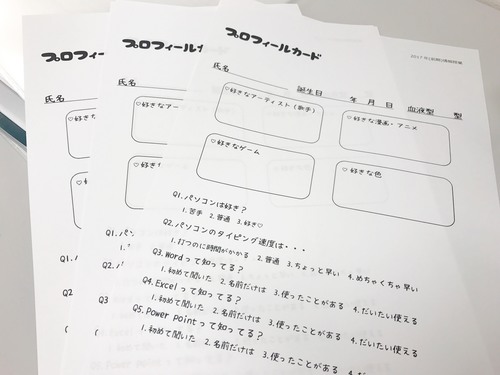 プロフィールカード
氏名 誕生日 年 月 日 血液型 型
♡好きなアーティスト(歌手)
♡好きな漫画・アニメ
♡好きなゲーム
♡好きな色
Q1.パソコンは好き?
1.苦手 2.普通 3.好き♡
Q2.パソコンのタイピング速度は・・・
1.打つのに時間がかかる 2.普通 3.ちょっと早い 4.めちゃくちゃ早い
Q3.Wordって知ってる?
1.初めて聞いた 2.名前だけは 3.使ったことがある 4.だいたい使える
Q4.Excelって知ってる?
1.初めて聞いた 2.名前だけは 3.使ったことがある 4.だいたい使える
Q5.Power pointって知ってる?
1.初めて聞いた 2.名前だけは 3.使ったことがある 4.だいたい使える
プロフィール
氏名
♡好きなアー
♡好き
Q1.パ
Q2.
Q3
プロフィールカ
氏名
♡好きな
♡好
Q1.
Q2